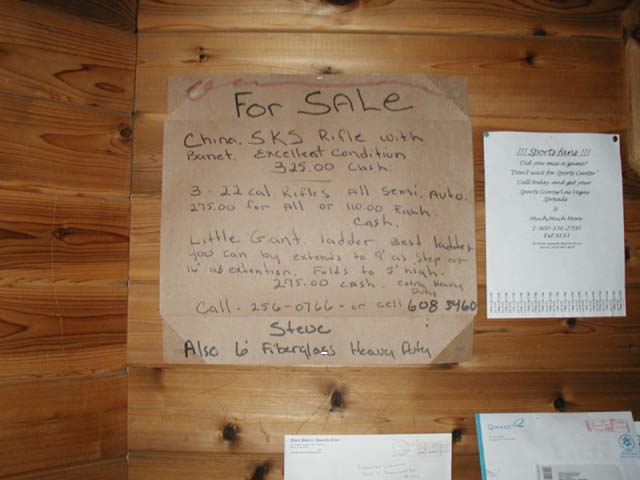 For SALe
China. SKS Rifle with
Banet. Excellent Condition
325.00 Cash.
3 - 22 cal Rifles All Semi. Auto.
275.00 for All or 110.00 Each.
Cash.
Little Giant. ladder Best ladder
you can by extends to 9' as step or
16' as extention. Folds to 5' high.
275.00 cash. Extra Heavy
Duty
Call. 256-0766 - or cell 608 5460
Steve
Also 6' Fiberglass Heavy Duty
!!! Sports fans !!!
Did you miss a game?
"Don't wait for Sports Center"
Call today and get your
Sports Scores/Las Vegas
Spreads
&
Much, Much More
Qwest